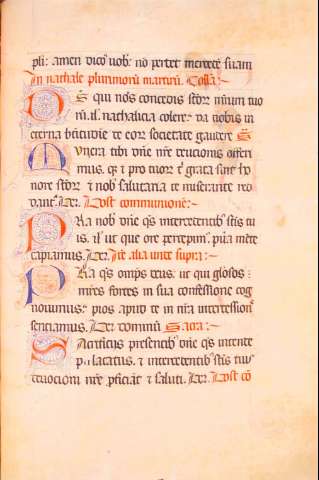 pli: amen dico uob: nō perdet mercedē suam
In nathale plurimorū martirū. Collā:~
DS qui nos concedis scōꝝ mrūm tuo
nū. ił. nathalicia colere: da nobis in
eterna btitudine de eoꝝ societate gaudere. S
Munera tibi dn̄e nrē deuotionis offeri
mus. q̄ et pro tuoꝝ t̄ grata sint ho
nore scōꝝ et nob̄ salutaria te miserante red
dant̄. Per. Post communionē:~
Pra nob̄ dn̄e q̄s intercedentib᷒ sc̄is tu
is. ił. ut que ore percepim᷒. pura mēte
capiamus. Per. Itē alia unde supra:~
Pra q̄s omps deus. ut qui gl̄osos
mr̄es fortes in sua confessione cog
nouimus: pios apud te in nr̄a intercession̄
senciamus. Per dominū Sacra:~
Sacrificijs presentib᷒ dn̄e q̄s intende
placatus. et intercedentib᷒ sc̄is tuis
deuocioni nrē proficiāt et saluti. Per. Post cō